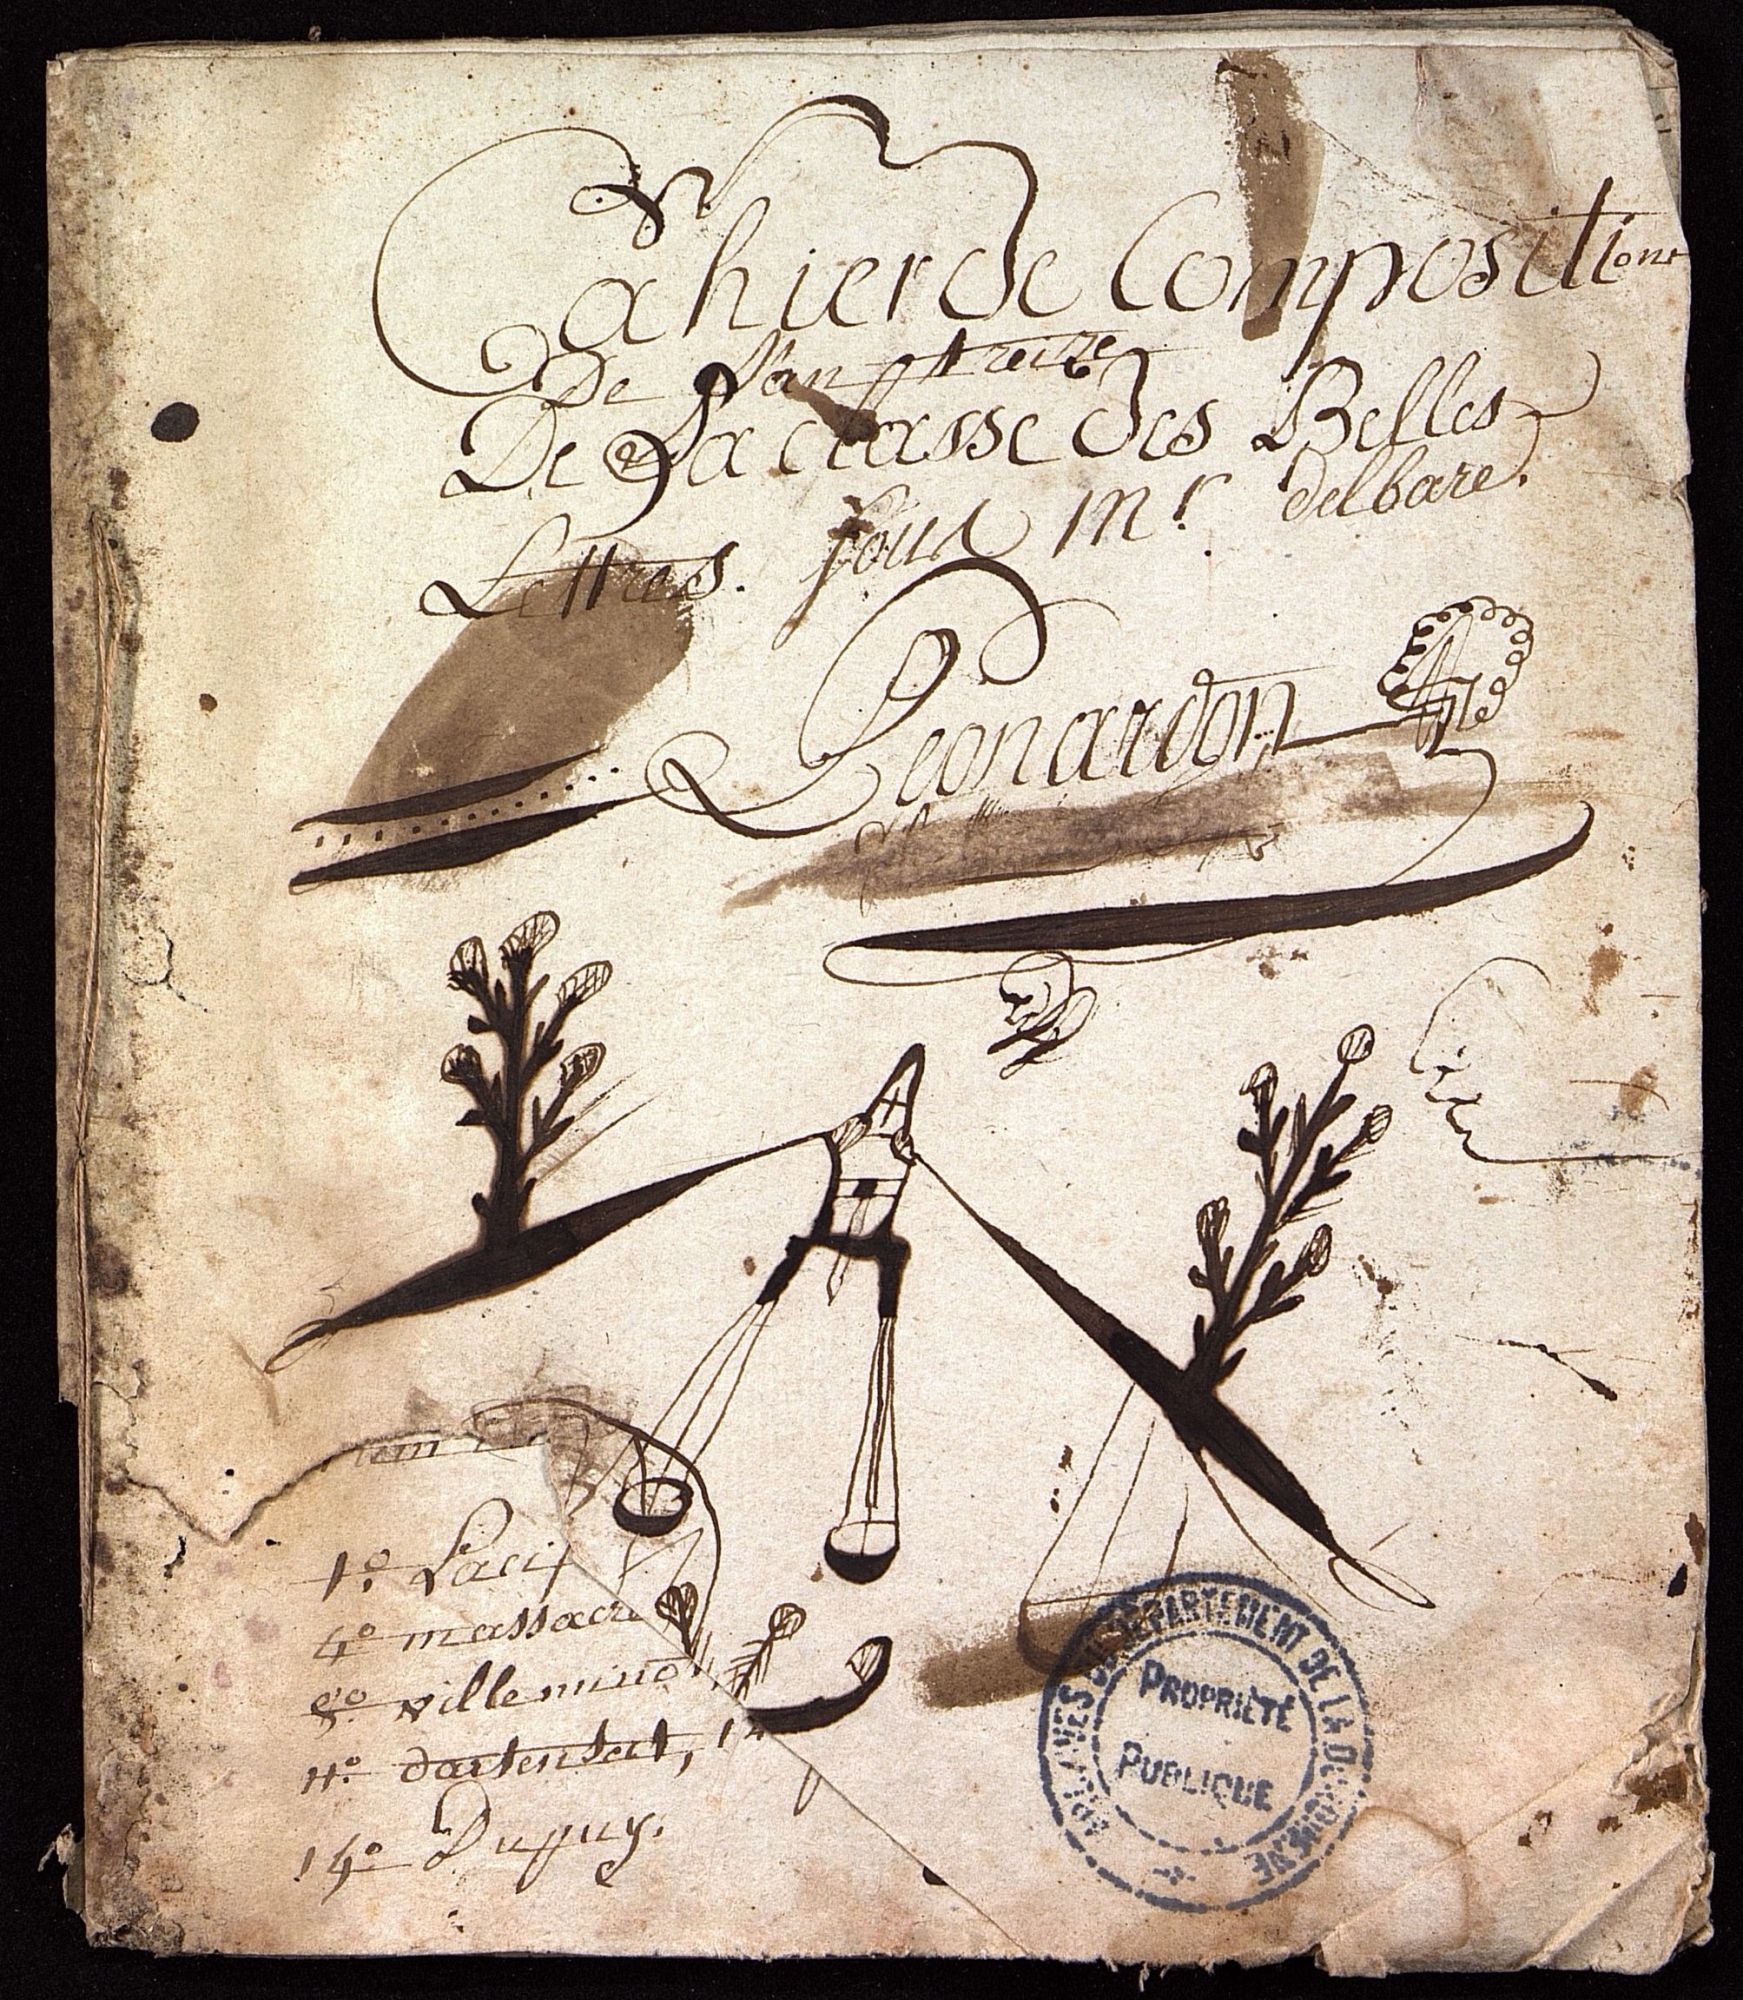 Cahier de Compositions
De l'an treize
De La classe des Belles
Lettres. sous Mr. delbare.
Leonardon
1º. Lacij
4º massacre
8º. villeminó
11º. dartensect,
14º Dupuy.
ARCHIVES DU DÉPARTEMENT DE LA DORDOGNE
PROPRIÉTÉ
PUBLIQUE